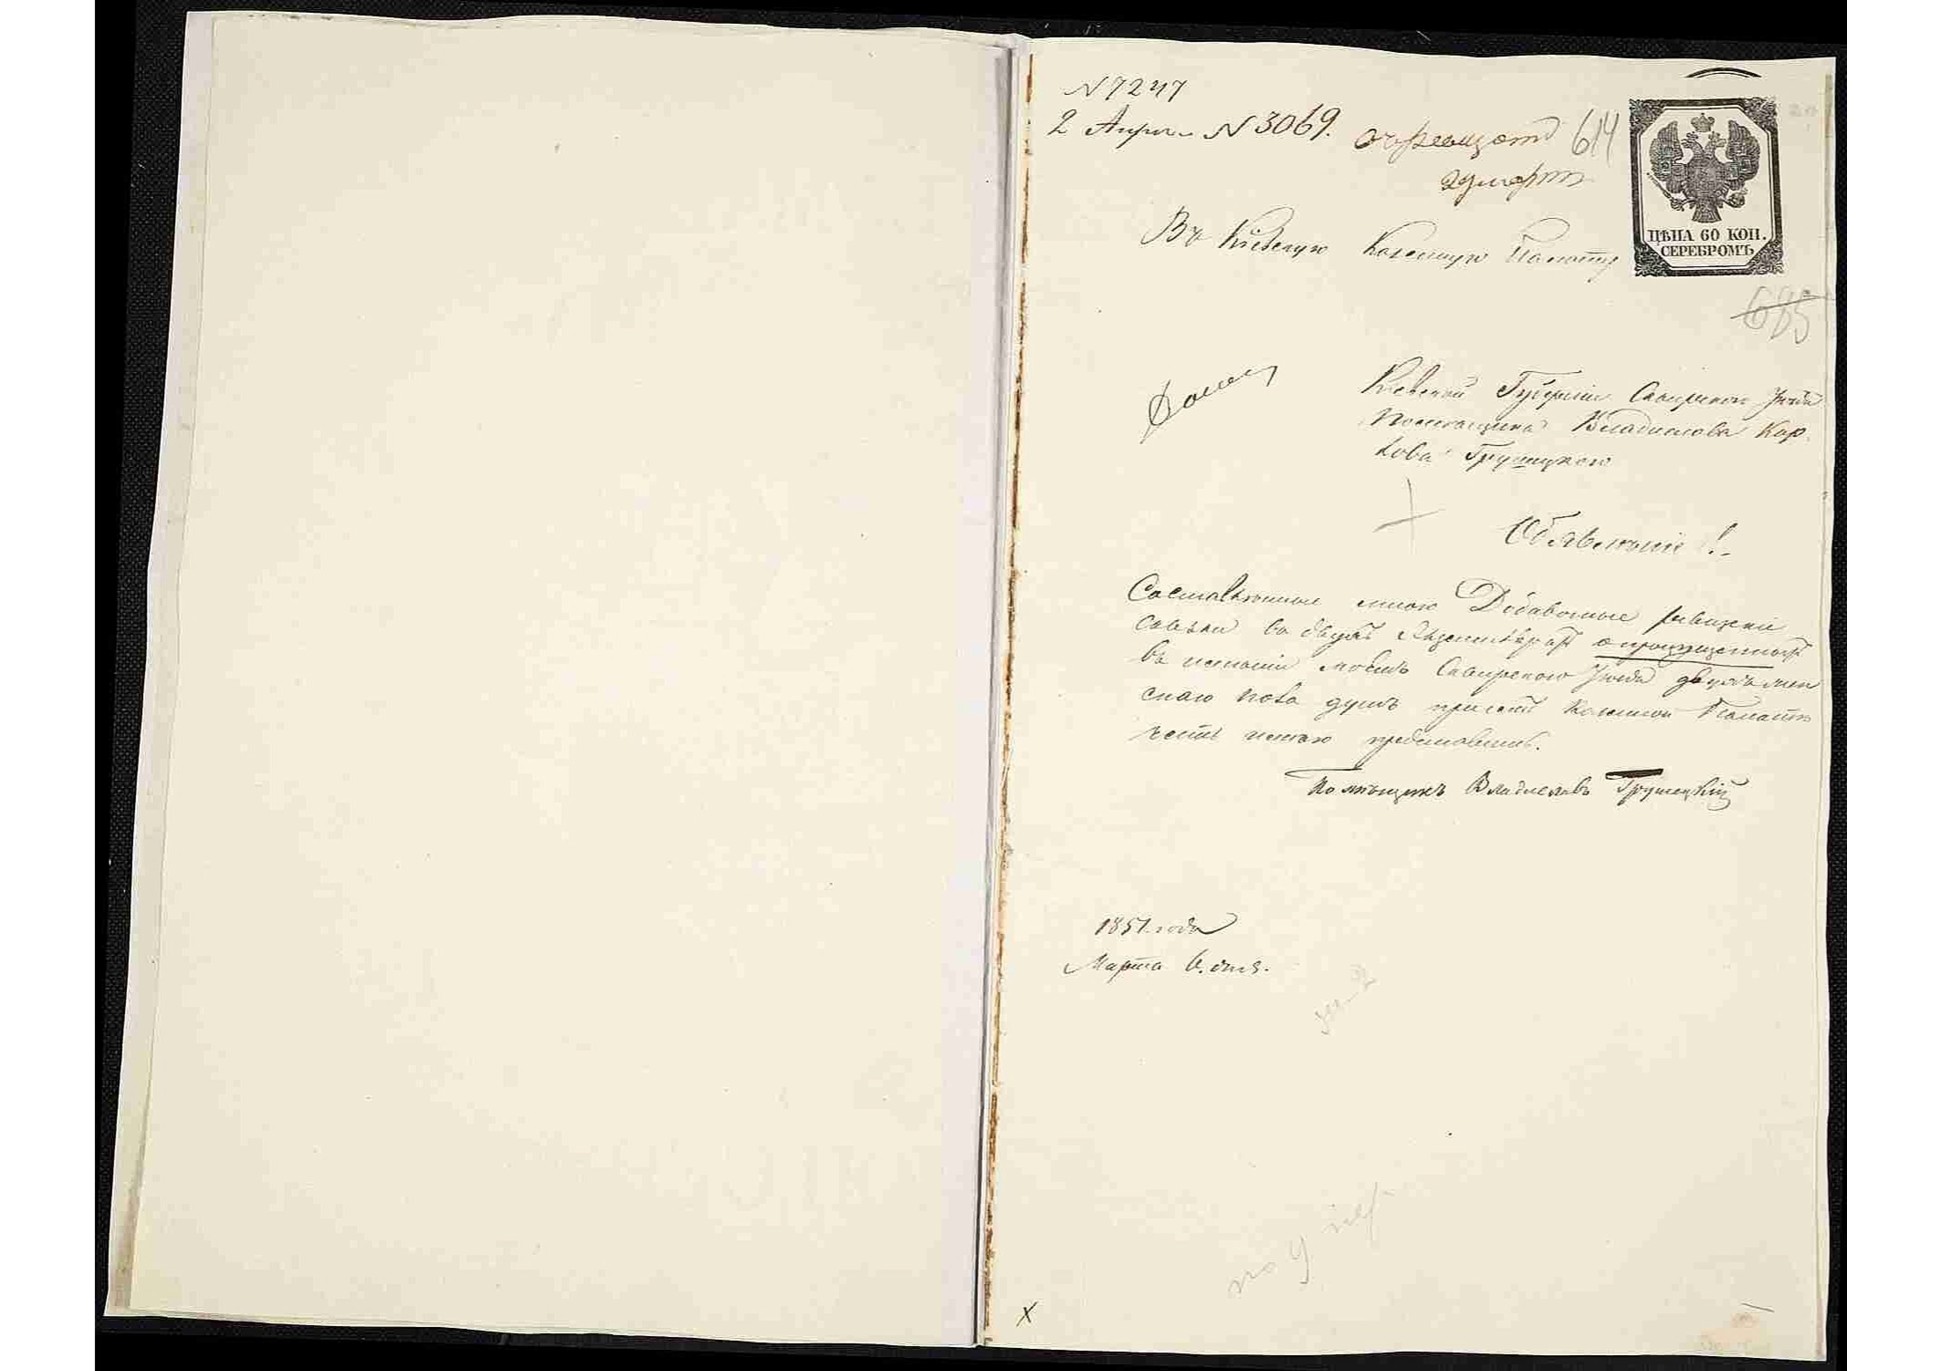 N 7247
2 Апрел N 3069.
614
29 марта
ЦѢНА 60 КОП.
СЕРЕБРОМЪ
Въ Кіевскую Казенную Палату
685
Кіевской Губерніи Сквирского Уѣзда
Помѣщика Владислава Кар
лова Грушецкого
Объявленіе!
Составленные мною Добавочные ревизскіе
сказки въ двухъ Экземплярахъ о пропущенныхъ
въ имѣніи моемъ Сквирского Уѣзда двухъ муж
скаго пола душъ при семъ Казенной Палатѣ
честь имѣю представить.
Помѣщикъ Владиславъ Грушецкій
1851 года
Марта 6. дня.